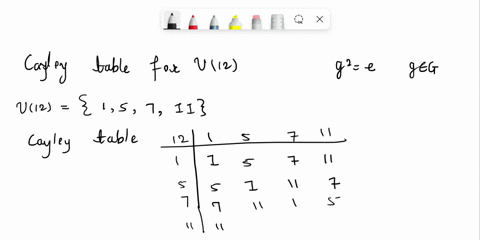 Cayley table for U(12) g² = e g∈G
U(12) = { 1, 5, 7, 11}
Cayley table 12 1 5 7 11
1 1 5 7 11
5 5 1 11 7
7 7 11 1 5
11 11